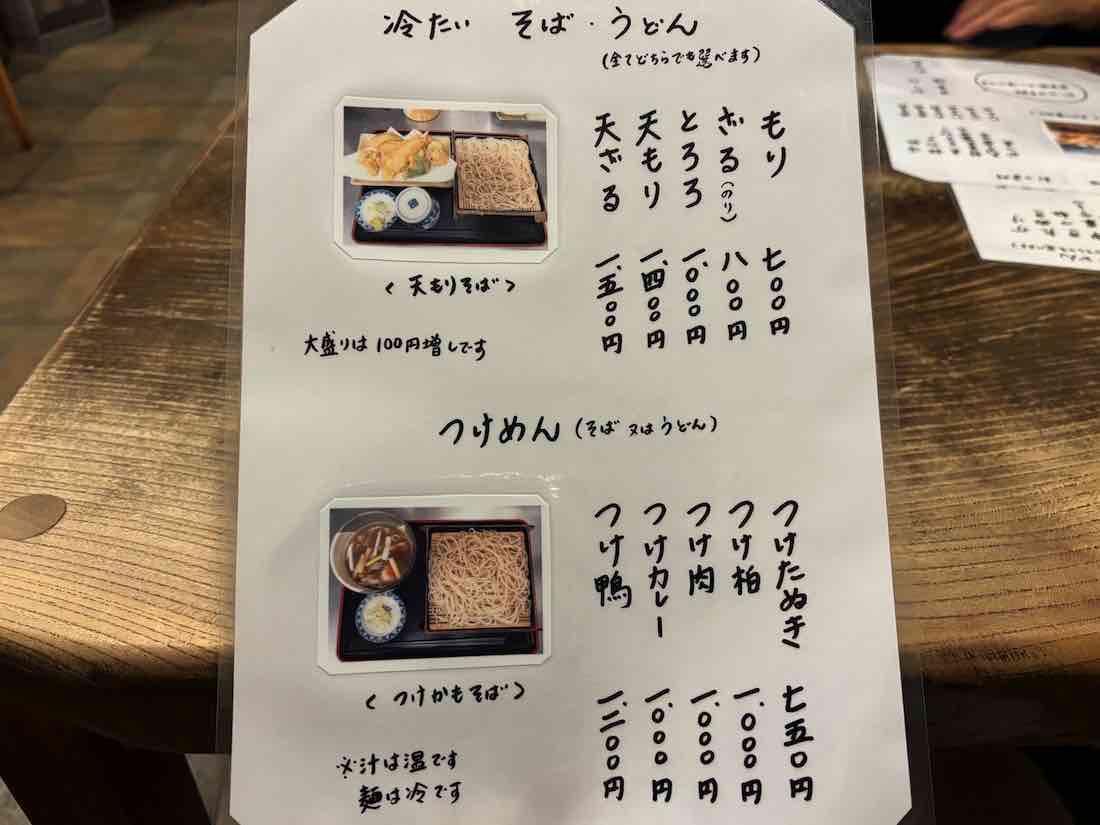 冷たい そば・うどん
(全てどちらでも選べます)
もり 七〇〇円
ざる(のり) 八〇〇円
とろろ 一、〇〇〇円
天もり 一、四〇〇円
天ざる 一、五〇〇円
<天もりそば>
大盛りは100円増しです
つけめん(そば又はうどん)
つけたぬき 七五〇円
つけ柏 一、〇〇〇円
つけ肉 一、〇〇〇円
つけカレー 一、〇〇〇円
つけ鴨 一、二〇〇円
<つけかもそば>
※汁は温です
麺は冷です